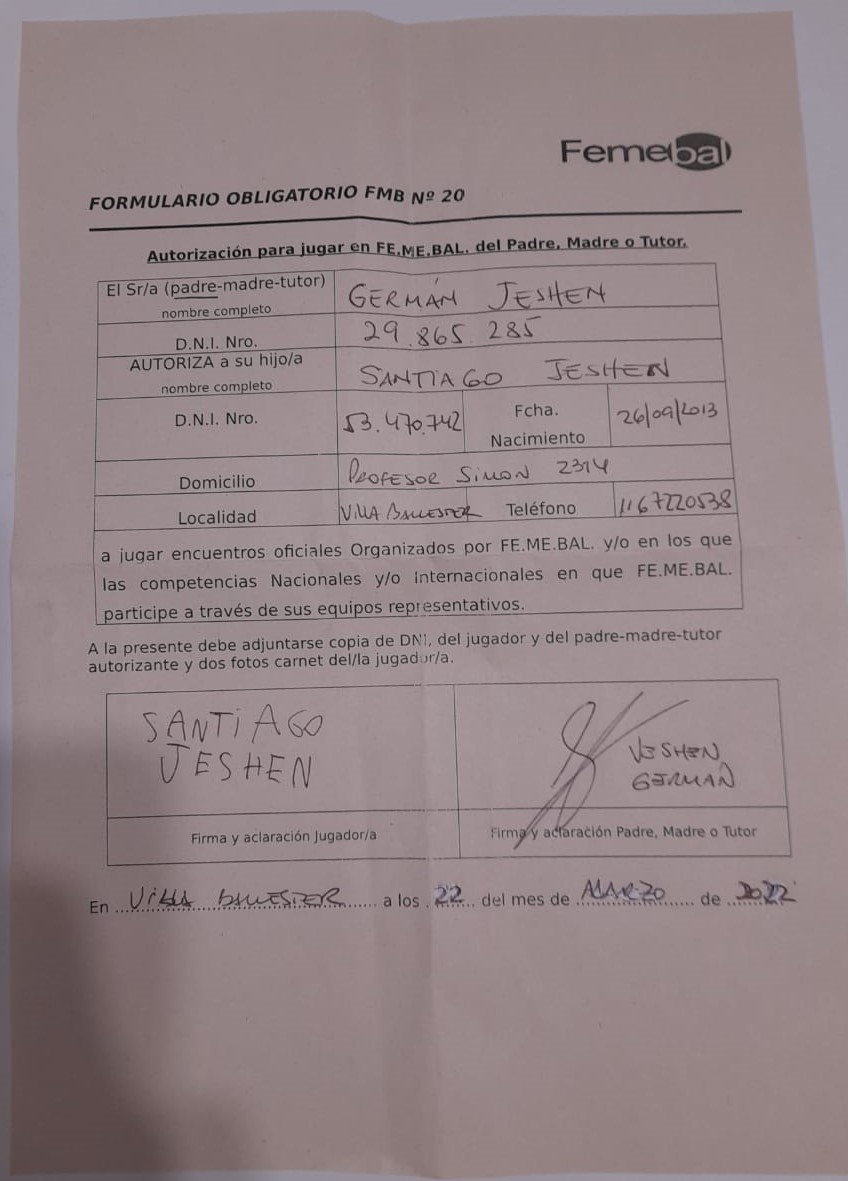 Femebal
FORMULARIO OBLIGATORIO FMB Nº 20
Autorización para jugar en FE.ME.BAL. del Padre, Madre o Tutor.
El Sr/a (padre-madre-tutor)
nombre completo
GERMÁN JESHEN
D.N.I. Nro.
29.865.285
AUTORIZA a su hijo/a
nombre completo
SANTIAGO JESHEN
D.N.I. Nro.
53.470.742
Fcha.
Nacimiento
26/09/2013
Domicilio
PROFESOR SIMON 2314
Localidad
VILLA BALLESTER
Teléfono
1167220538
a jugar encuentros oficiales Organizados por FE.ME.BAL. y/o en los que
las competencias Nacionales y/o Internacionales en que FE.ME.BAL.
participe a través de sus equipos representativos.
A la presente debe adjuntarse copia de DNI, del jugador y del padre-madre-tutor
autorizante y dos fotos carnet del/la jugador/a.
SANTIAGO
JESHEN
JESHEN
GERMAN
Firma y aclaración Jugador/a
Firma y aclaración Padre, Madre o Tutor
En VILLA BALLESTER a los 22 del mes de MARZO de 2022